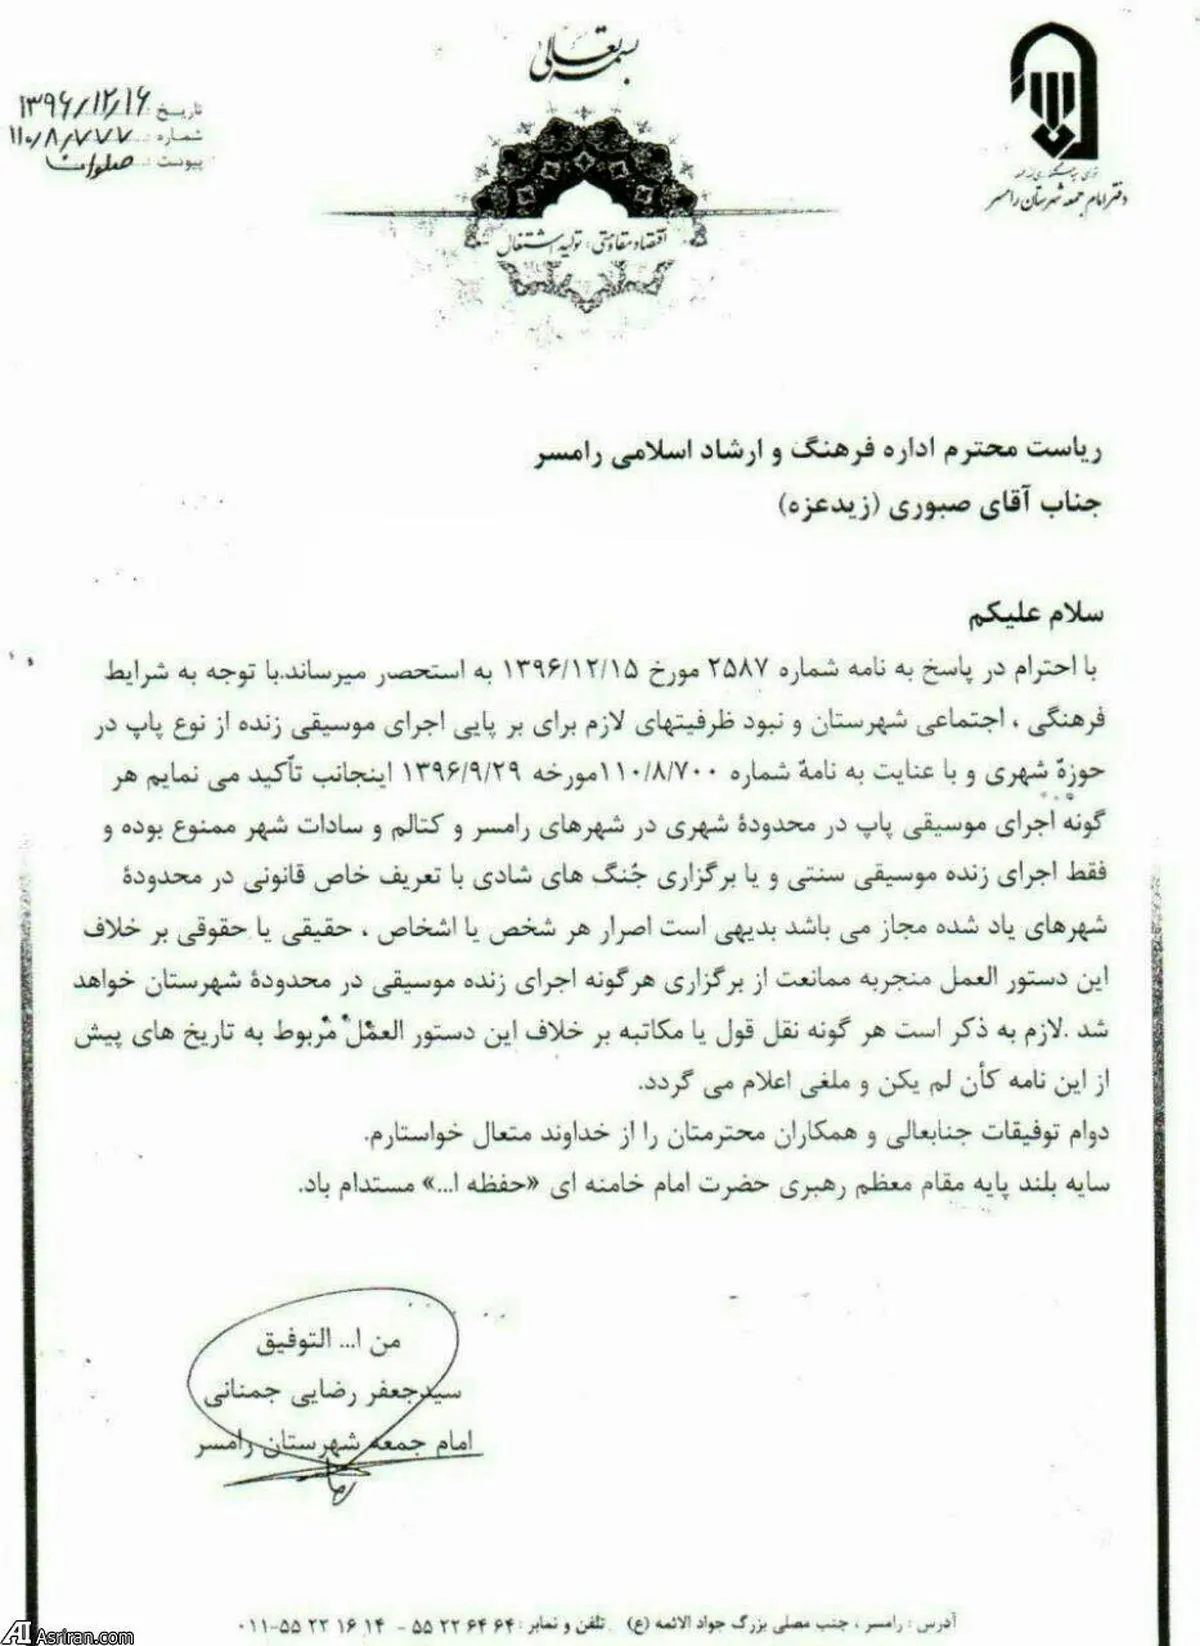 بسمه تعالی
تاریخ: ۱۳۹۶/۱۲/۱۶
شماره: ۱۱۰/۸/۷۷۷
پیوست: صلوات
دفتر امام جمعه شهرستان رامسر
اقتصاد مقاومتی، تولید اشتغال
ریاست محترم اداره فرهنگ و ارشاد اسلامی رامسر
جناب آقای صبوری (زیدعزه)
سلام علیکم
با احترام در پاسخ به نامه شماره ۲۵۸۷ مورخ ۱۳۹۶/۱۲/۱۵ به استحصر میرساند.با توجه به شرایط
فرهنگی ، اجتماعی شهرستان و نبود ظرفیتهای لازم برای بر پایی اجرای موسیقی زنده از نوع پاپ در
حوزهٔ شهری و با عنایت به نامهٔ شماره ۱۱۰/۸/۷۰۰مورخه ۱۳۹۶/۹/۲۹ اینجانب تأکید می نمایم هر
گونه اجرای موسیقی پاپ در محدودهٔ شهری در شهرهای رامسر و کتالم و سادات شهر ممنوع بوده و
فقط اجرای زنده موسیقی سنتی و یا برگزاری جُنگ های شادی با تعریف خاص قانونی در محدودهٔ
شهرهای یاد شده مجاز می باشد بدیهی است اصرار هر شخص یا اشخاص ، حقیقی یا حقوقی بر خلاف
این دستور العمل منجربه ممانعت از برگزاری هرگونه اجرای زنده موسیقی در محدودهٔ شهرستان خواهد
شد .لازم به ذکر است هر گونه نقل قول یا مکاتبه بر خلاف این دستور العمل مربوط به تاریخ های پیش
از این نامه کأن لم یکن و ملغی اعلام می گردد.
دوام توفیقات جنابعالی و همکاران محترمتان را از خداوند متعال خواستارم.
سایه بلند پایه مقام معظم رهبری حضرت امام خامنه ای «حفظه ا...» مستدام باد.
من ا... التوفیق
سیدجعفر رضایی جمنانی
امام جمعه شهرستان رامسر
آدرس : رامسر ، جنب مصلی بزرگ جواد الائمه (ع) تلفن و نمابر : ۵۵ ۲۲ ۶۴ ۶۴ - ۰۱۱-۵۵ ۲۲ ۱۶ ۱۴
Asriran.com